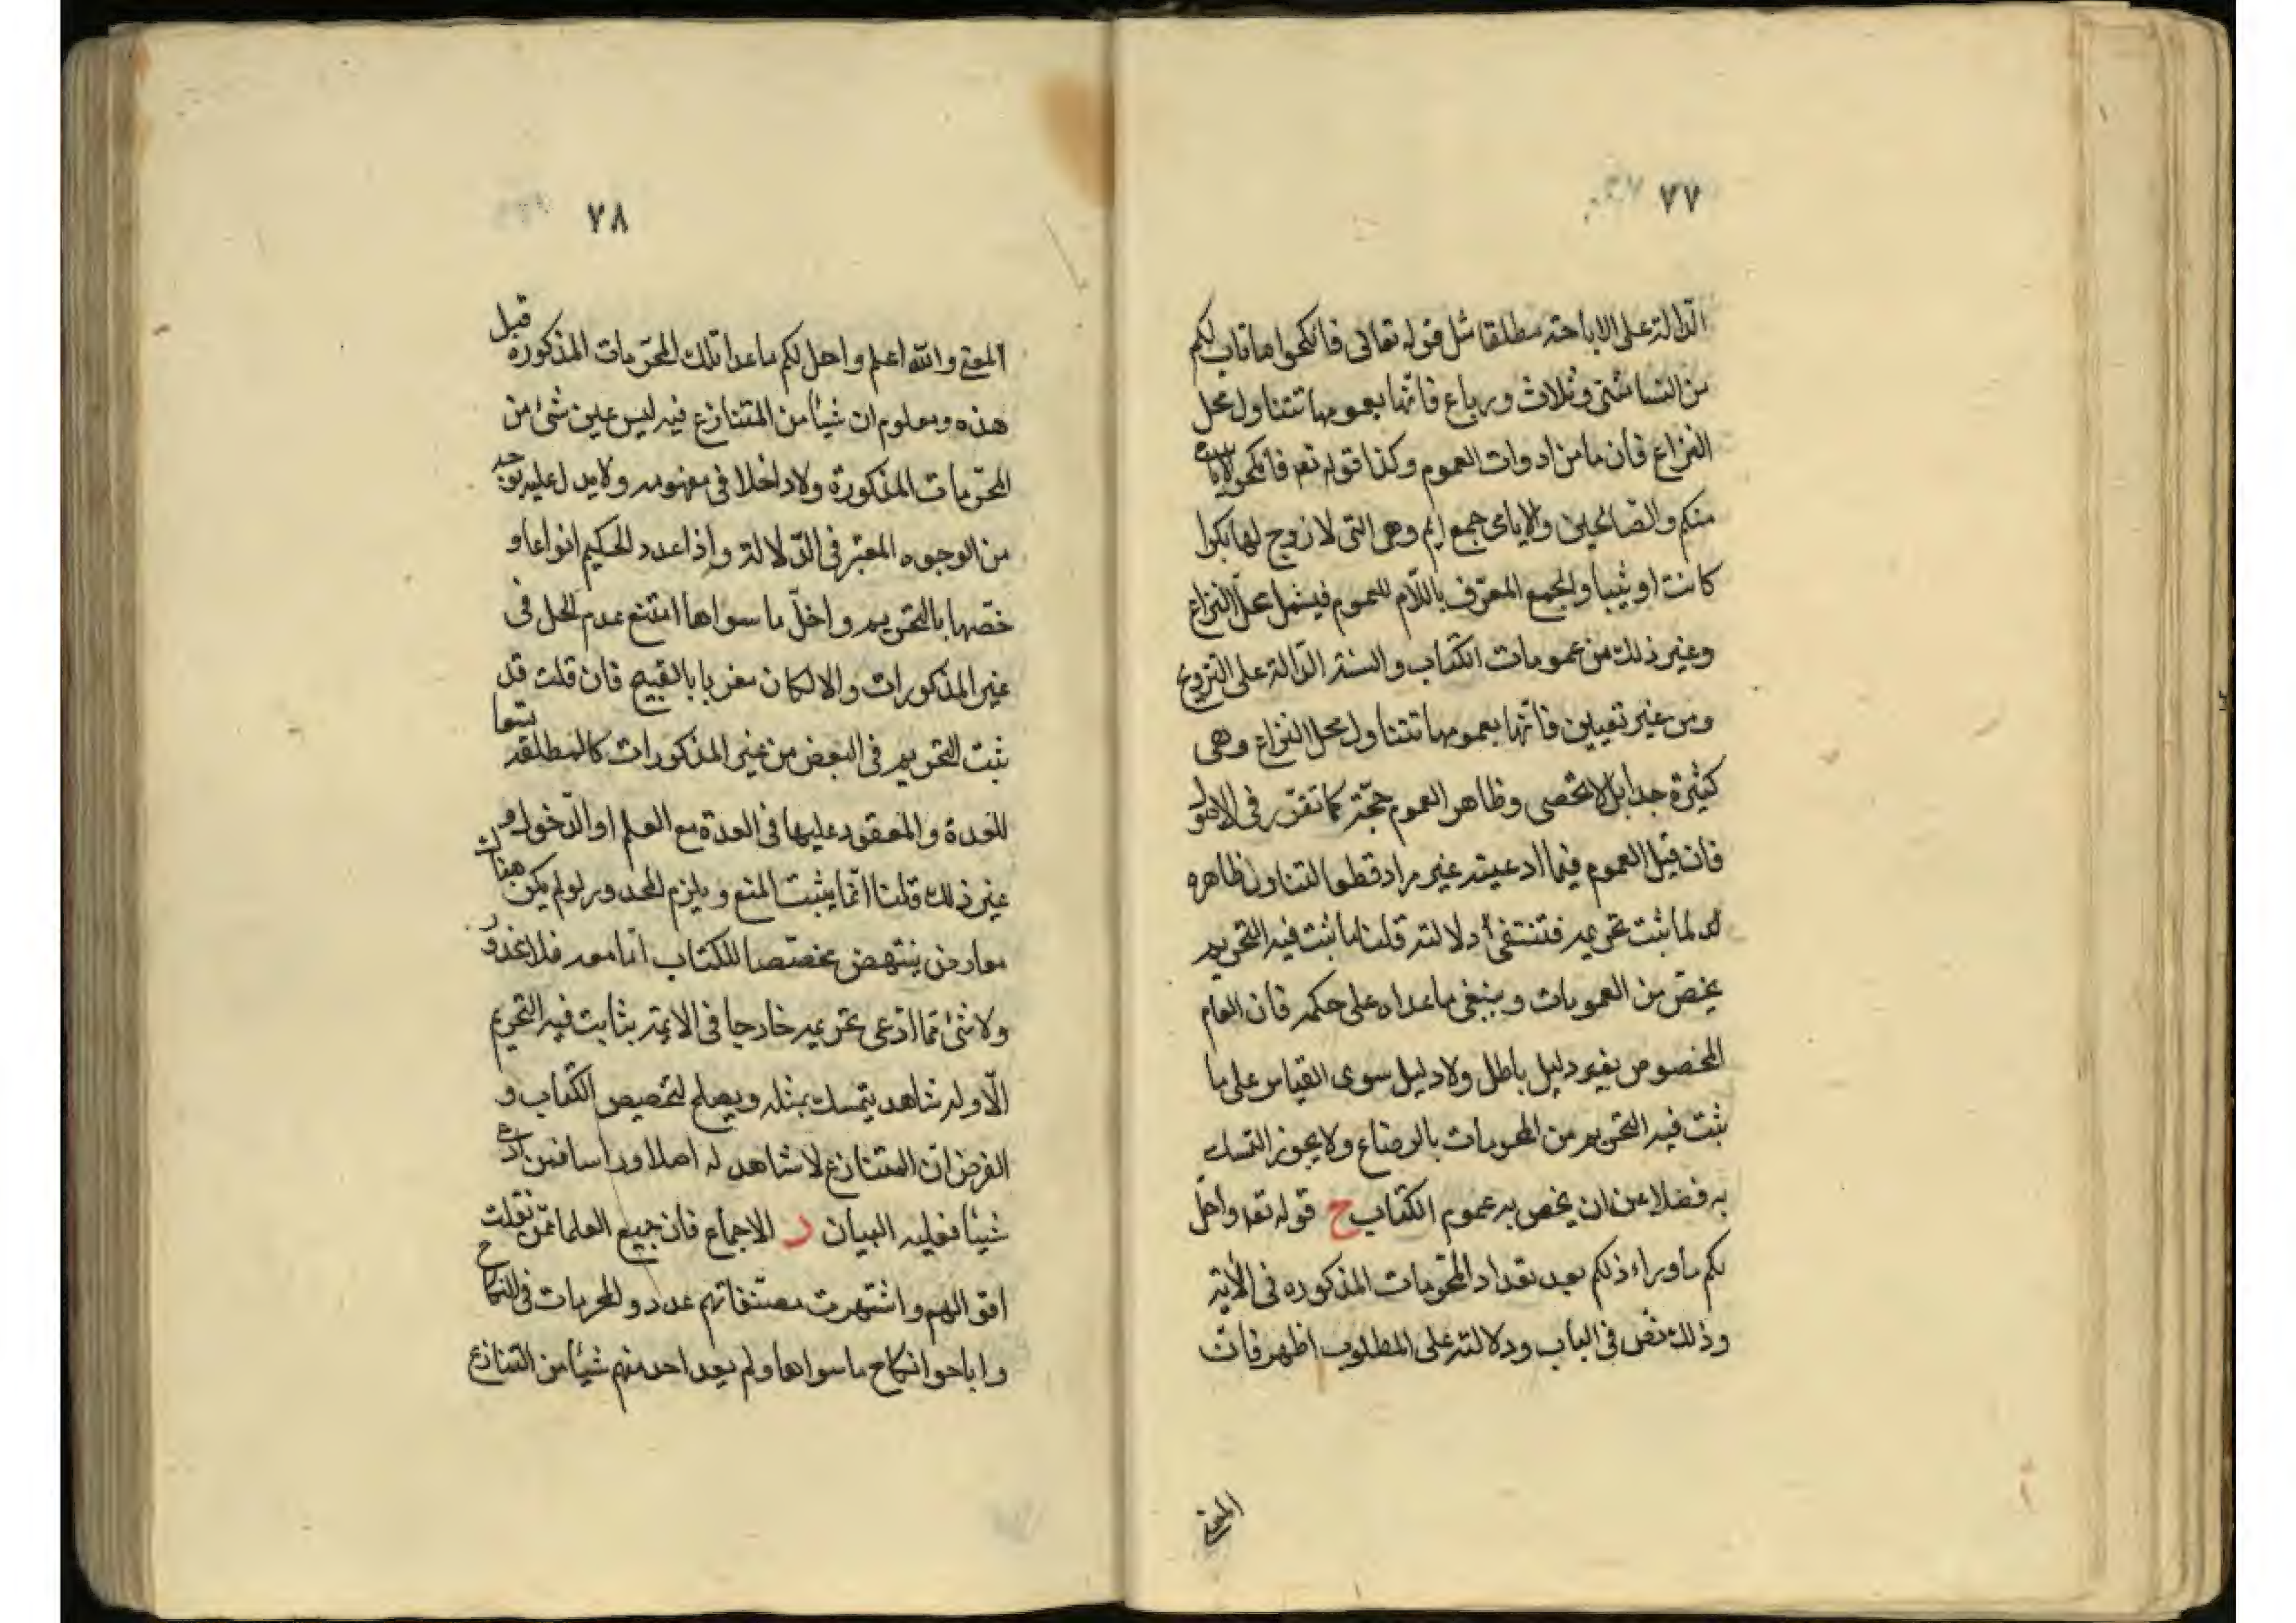 ٧٧
الدالة على الاباحة مطلقا مثل قوله تعالى فانكحوا ما طاب لكم
من النسا مثنى وثلاث ورباع فانها بعمومها تتناول محل
النزاع فان ما من ادوات العموم وكذا قوله تعه فانكحوا الايامى
منكم والصالحين والايامى جمع ايم وهى التى لا زوج لها بكرا
كانت او ثيبا والجمع المعرف باللام للعموم فيشمل محل النزاع
وغير ذلك من عمومات الكتاب والسنة الدالة على التزويج
ومن غير تعيين فانها بعمومها تتناول محل النزاع وهى
كثيرة جدا بل لا تحصى وظاهر العموم حجة كما تقرر فى الاصول
فان قيل العموم فيما ادعيته غير مراد قطعا لتناول ظاهره
لما ثبت تحريمه فتنتفى دلالته قلنا ما ثبت فيه التحريم
يخص من العمومات ويبقى ما عداه على حكمه فان العام
المخصوص بغير دليل باطل ولا دليل سوى القياس على ما
ثبت فيه التحريم من المحرمات بالرضاع ولا يجوز التمسك
به فضلا عن ان يخص به عموم الكتاب ح قوله تعه واحل
لكم ما وراء ذلكم بعد تعداد المحرمات المذكوره فى الاية
وذلك نص فى الباب ودلالته على المطلوب اظهر فان
المعنى
٧٨
المعنى والله اعلم واحل لكم ما عدا تلك المحرمات المذكوره قبل
هذه ومعلوم ان شيئا من المتنازع فيه ليس عين شئ من
المحرمات المذكورة ولا داخلا فى مفهومه ولا يدل عليه بوجه
من الوجوه المعتبر فى الدلالة واذا عدد الحكيم انواعا و
خصها بالتحريم واحل ما سواها امتنع عدم الحل فى
غير المذكورات والا لكان مغريا بالقبيح فان قلت قد
ثبت التحريم فى البعض من غير المذكورات كالمطلقة تسعا
للعدة والمعقود عليها فى العدة مع العلم او الدخول و
غير ذلك قلنا انما يثبت المنع ويلزم المحدور لو لم يكن هناك
معارض ينتهض مخصصا للكتاب اما معه فلا محذور
ولا شئ مما ادعى تحريمه خارجا فى الاية بثابت فيه التحريم
الا وله شاهد يتمسك بمثله ويصلح لتخصيص الكتاب و
الفرض ان المتنازع لا شاهد له اصلا وراسا فمن ادعى
شيئا فعليه البيان د الاجماع فان جميع العلما ممن نقلت
اقوالهم واشتهرت مصنفاتهم عددو المحرمات فى النكاح
واباحوا نكاح ما سواها ولم يعد احد منهم شيئا من التنازع